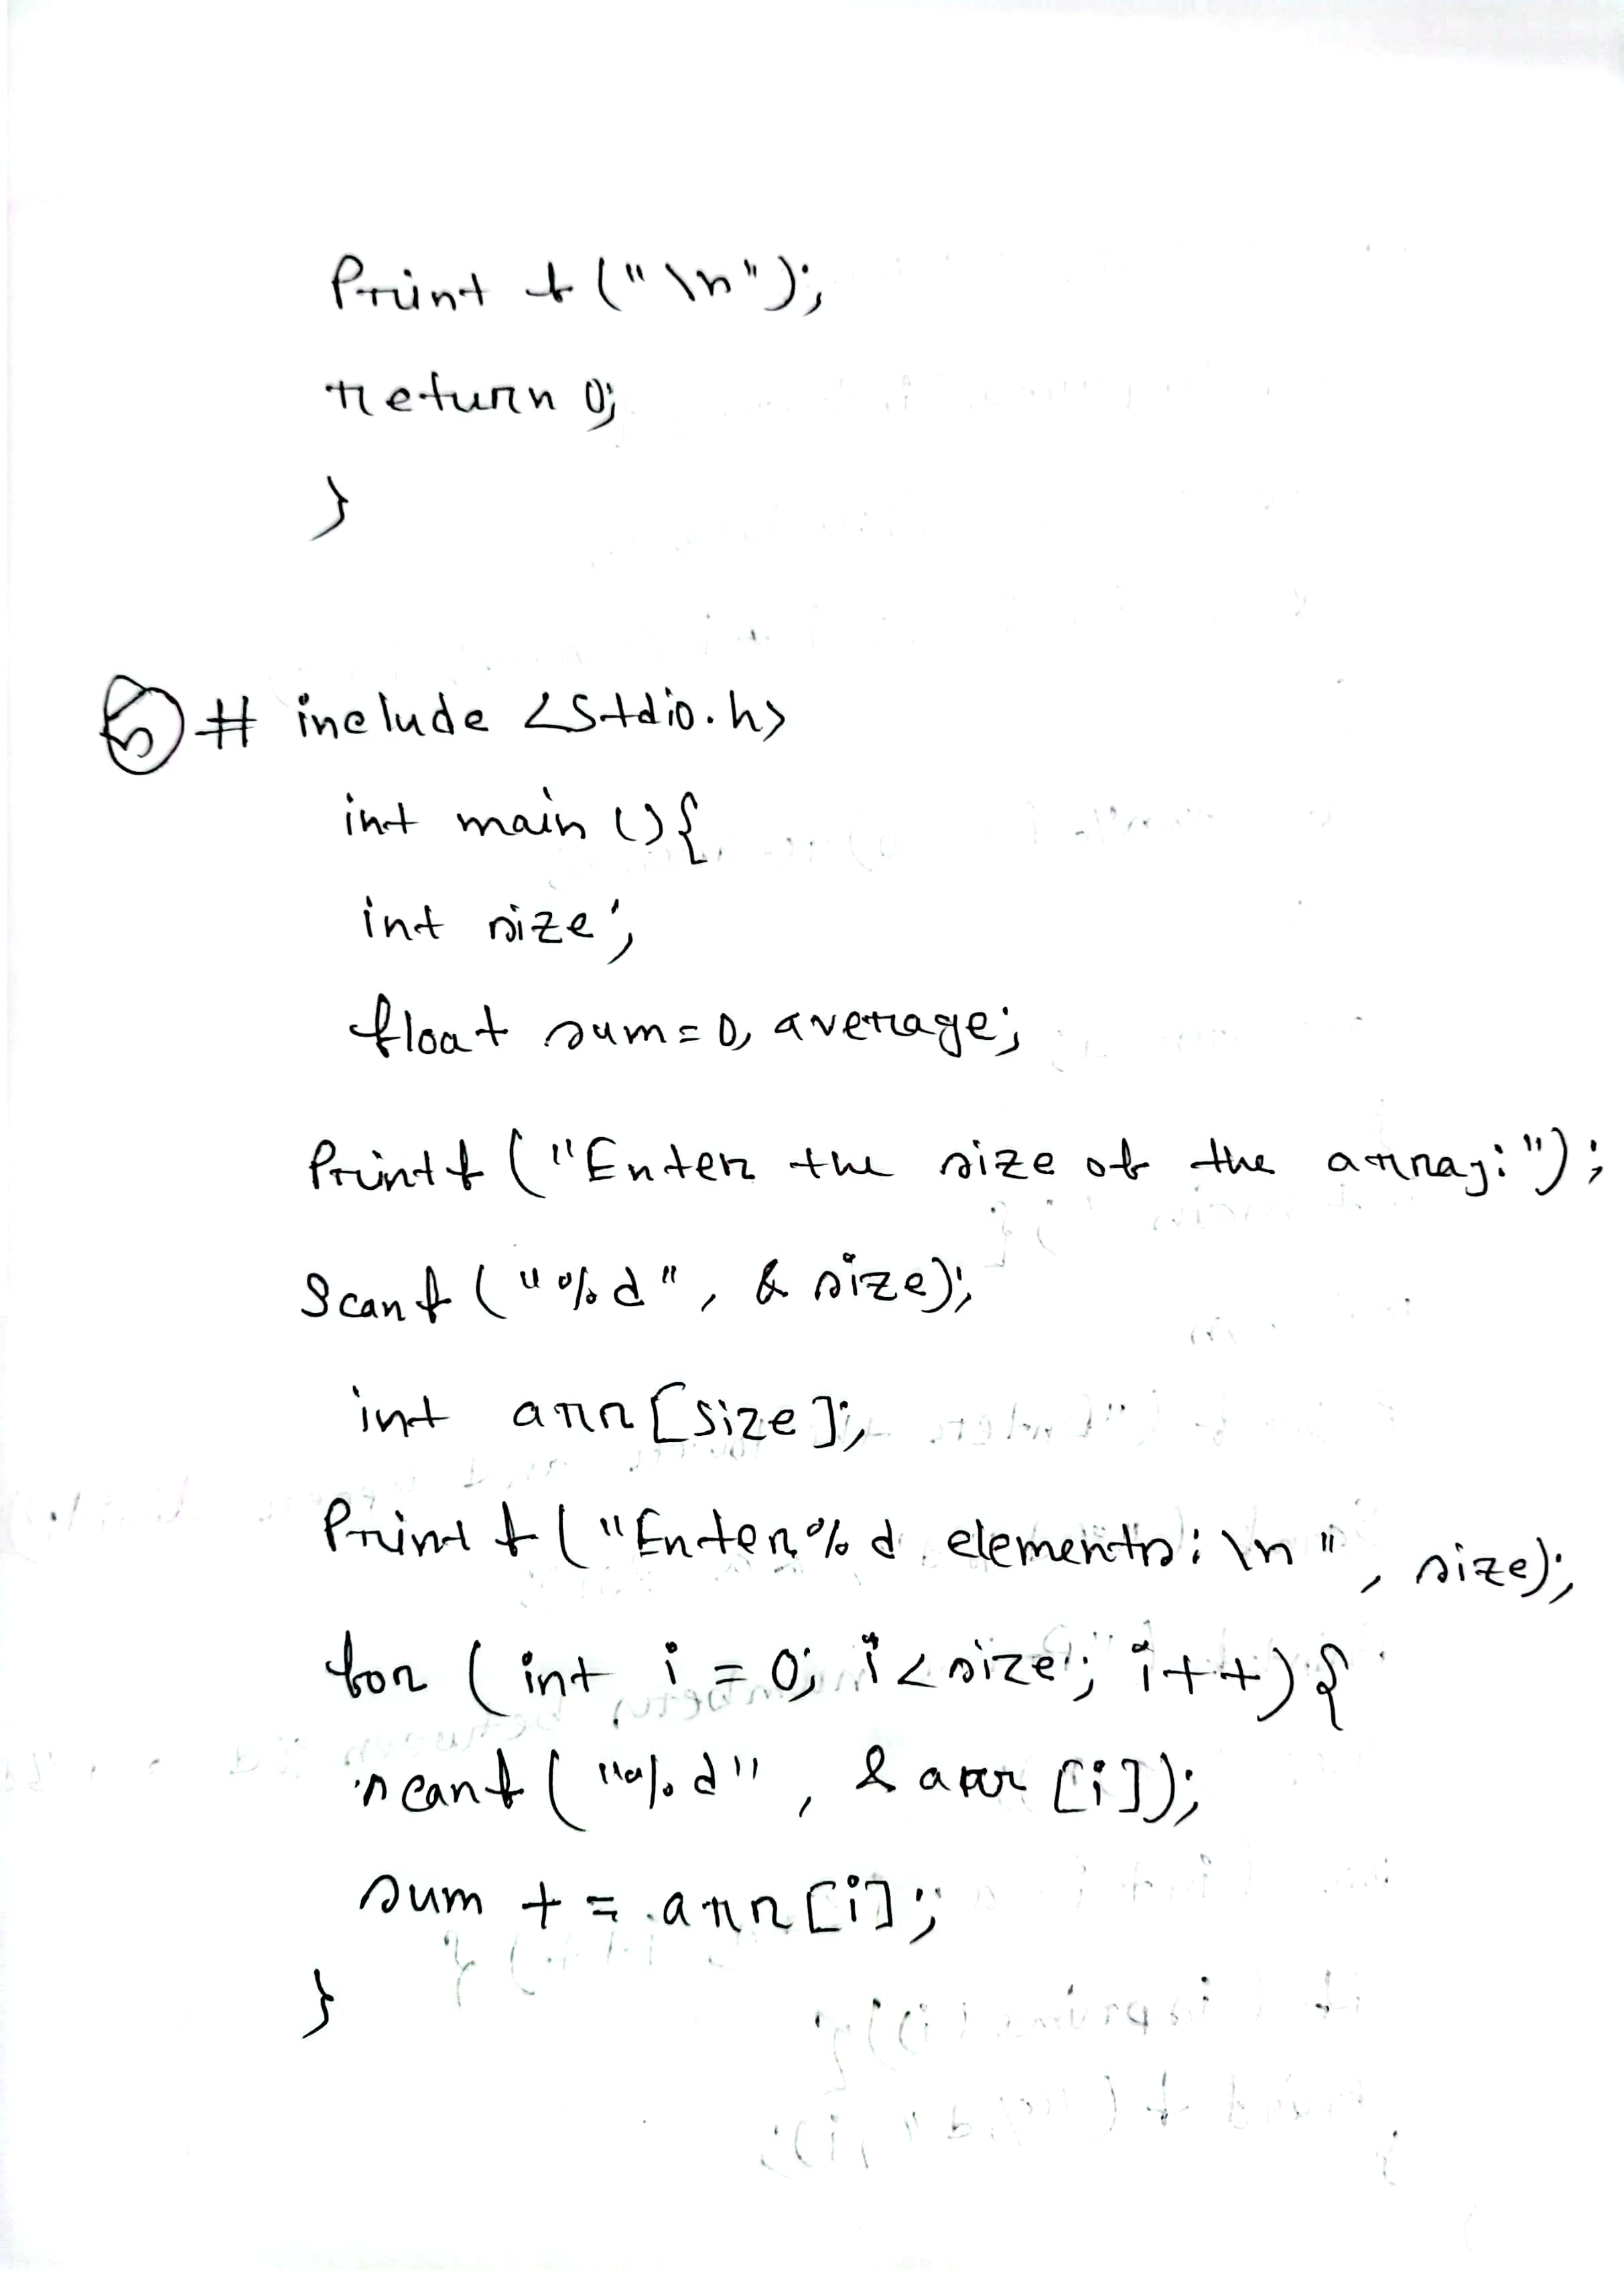 Printf("\n");
return 0;
}
5 # include <Stdio.h>
int main (){
int size;
float sum=0, average;
Printf ("Enter the size of the array:");
Scanf ("%d", & size);
int arr [size];
Printf ("Enter %d elements: \n", size);
for (int i = 0; i < size; i++){
scanf ("%d", & arr [i]);
sum += arr[i];
}